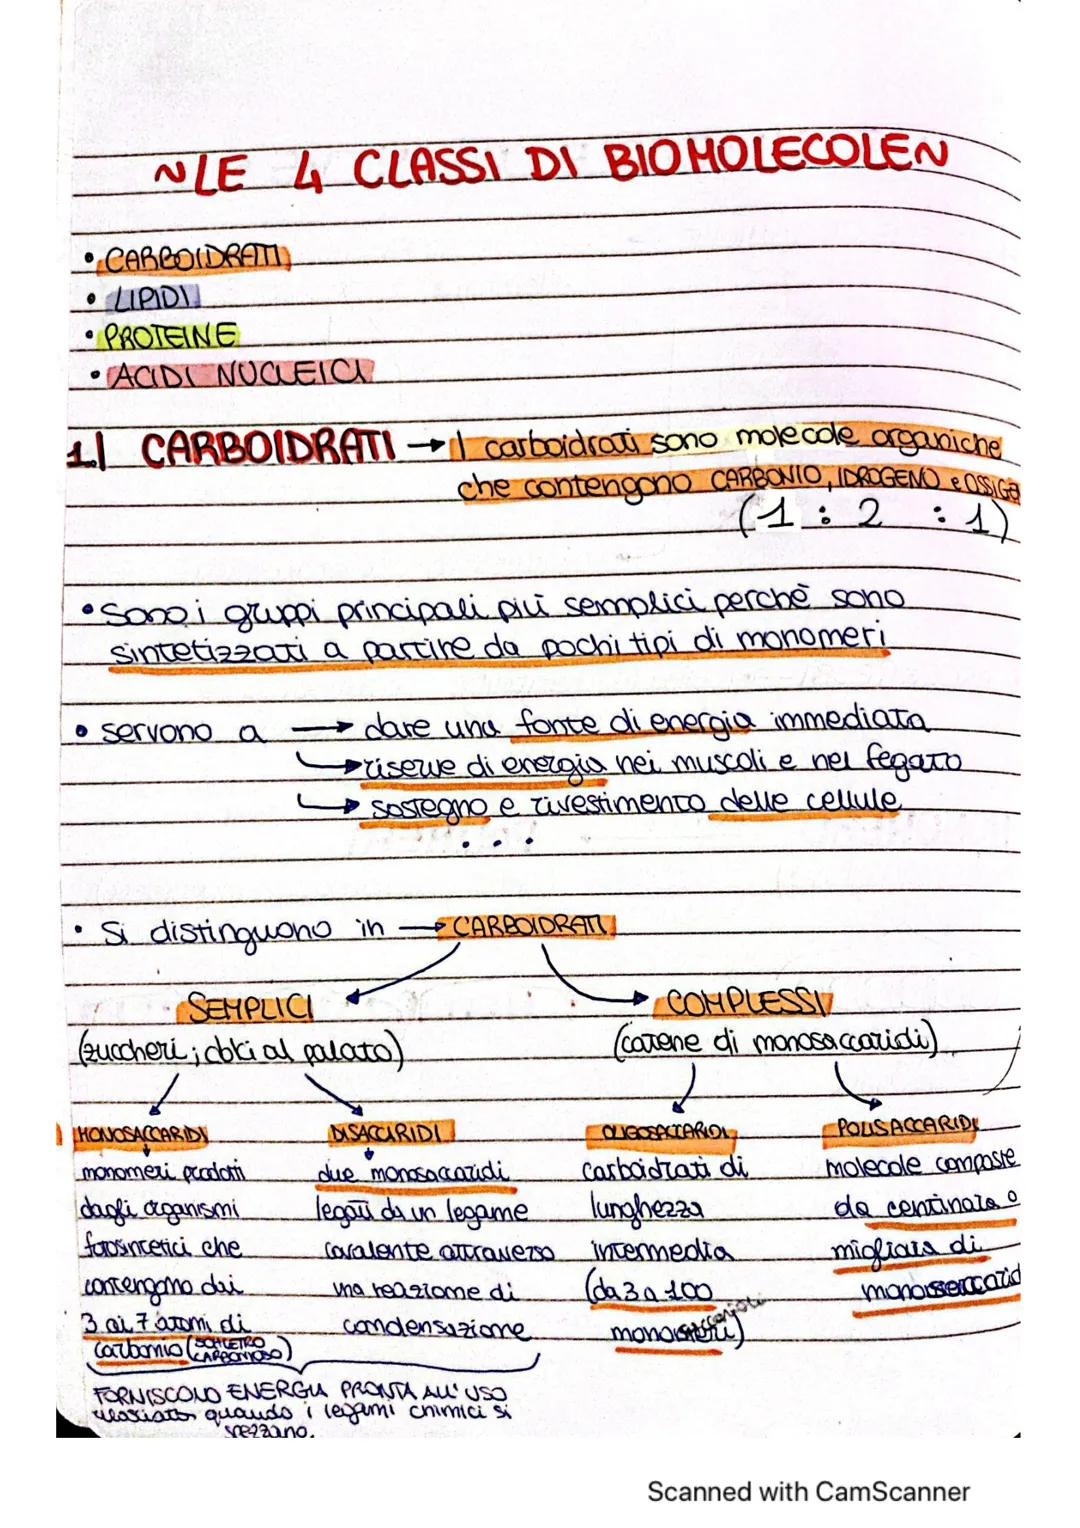 ~LE 4 CLASSI DI BIOMOLECOLE~
• CARBOIDRATI
• LIPIDI
• PROTEINE
• ACIDI NUCLEICI
1.| CARBOIDRATI → I carboidrati sono molecole organiche
che contengono CARBONIO, IDROGENO e OSSIGE
(1 : 2 : 1)
• Sono i gruppi principali più semplici perchè sono
sintetizzati a partire da pochi tipi di monomeri
• servono a → dare una fonte di energia immediata
→ riserve di energia nei muscoli e nel fegato
→ sostegno e rivestimento delle cellule
...
• Si distinguono in → CARBOIDRATI
SEMPLICI
(zuccheri; dolci al palato)
COMPLESSI
(catene di monosaccaridi)
MONOSACCARIDI
monomeri prodotti
dagli organismi
fotosintetici che
contengono dai
3 ai 7 atomi di
carbonio (SCHELETRO
CARBONIOSO)
DISACCARIDI
due monosaccaridi
legati da un legame
covalente attraverso
una reazione di
condensazione
FORNISCONO ENERGIA PRONTA ALL'USO
quando i legami chimici si
spezzano.
OLIGOSACCARIDI
carboidrati di
lunghezza
intermedia
(da 3 a 100
POLISACCARIDI
molecole composte
da centinaia o
migliaia di
Scanned with CamScanner